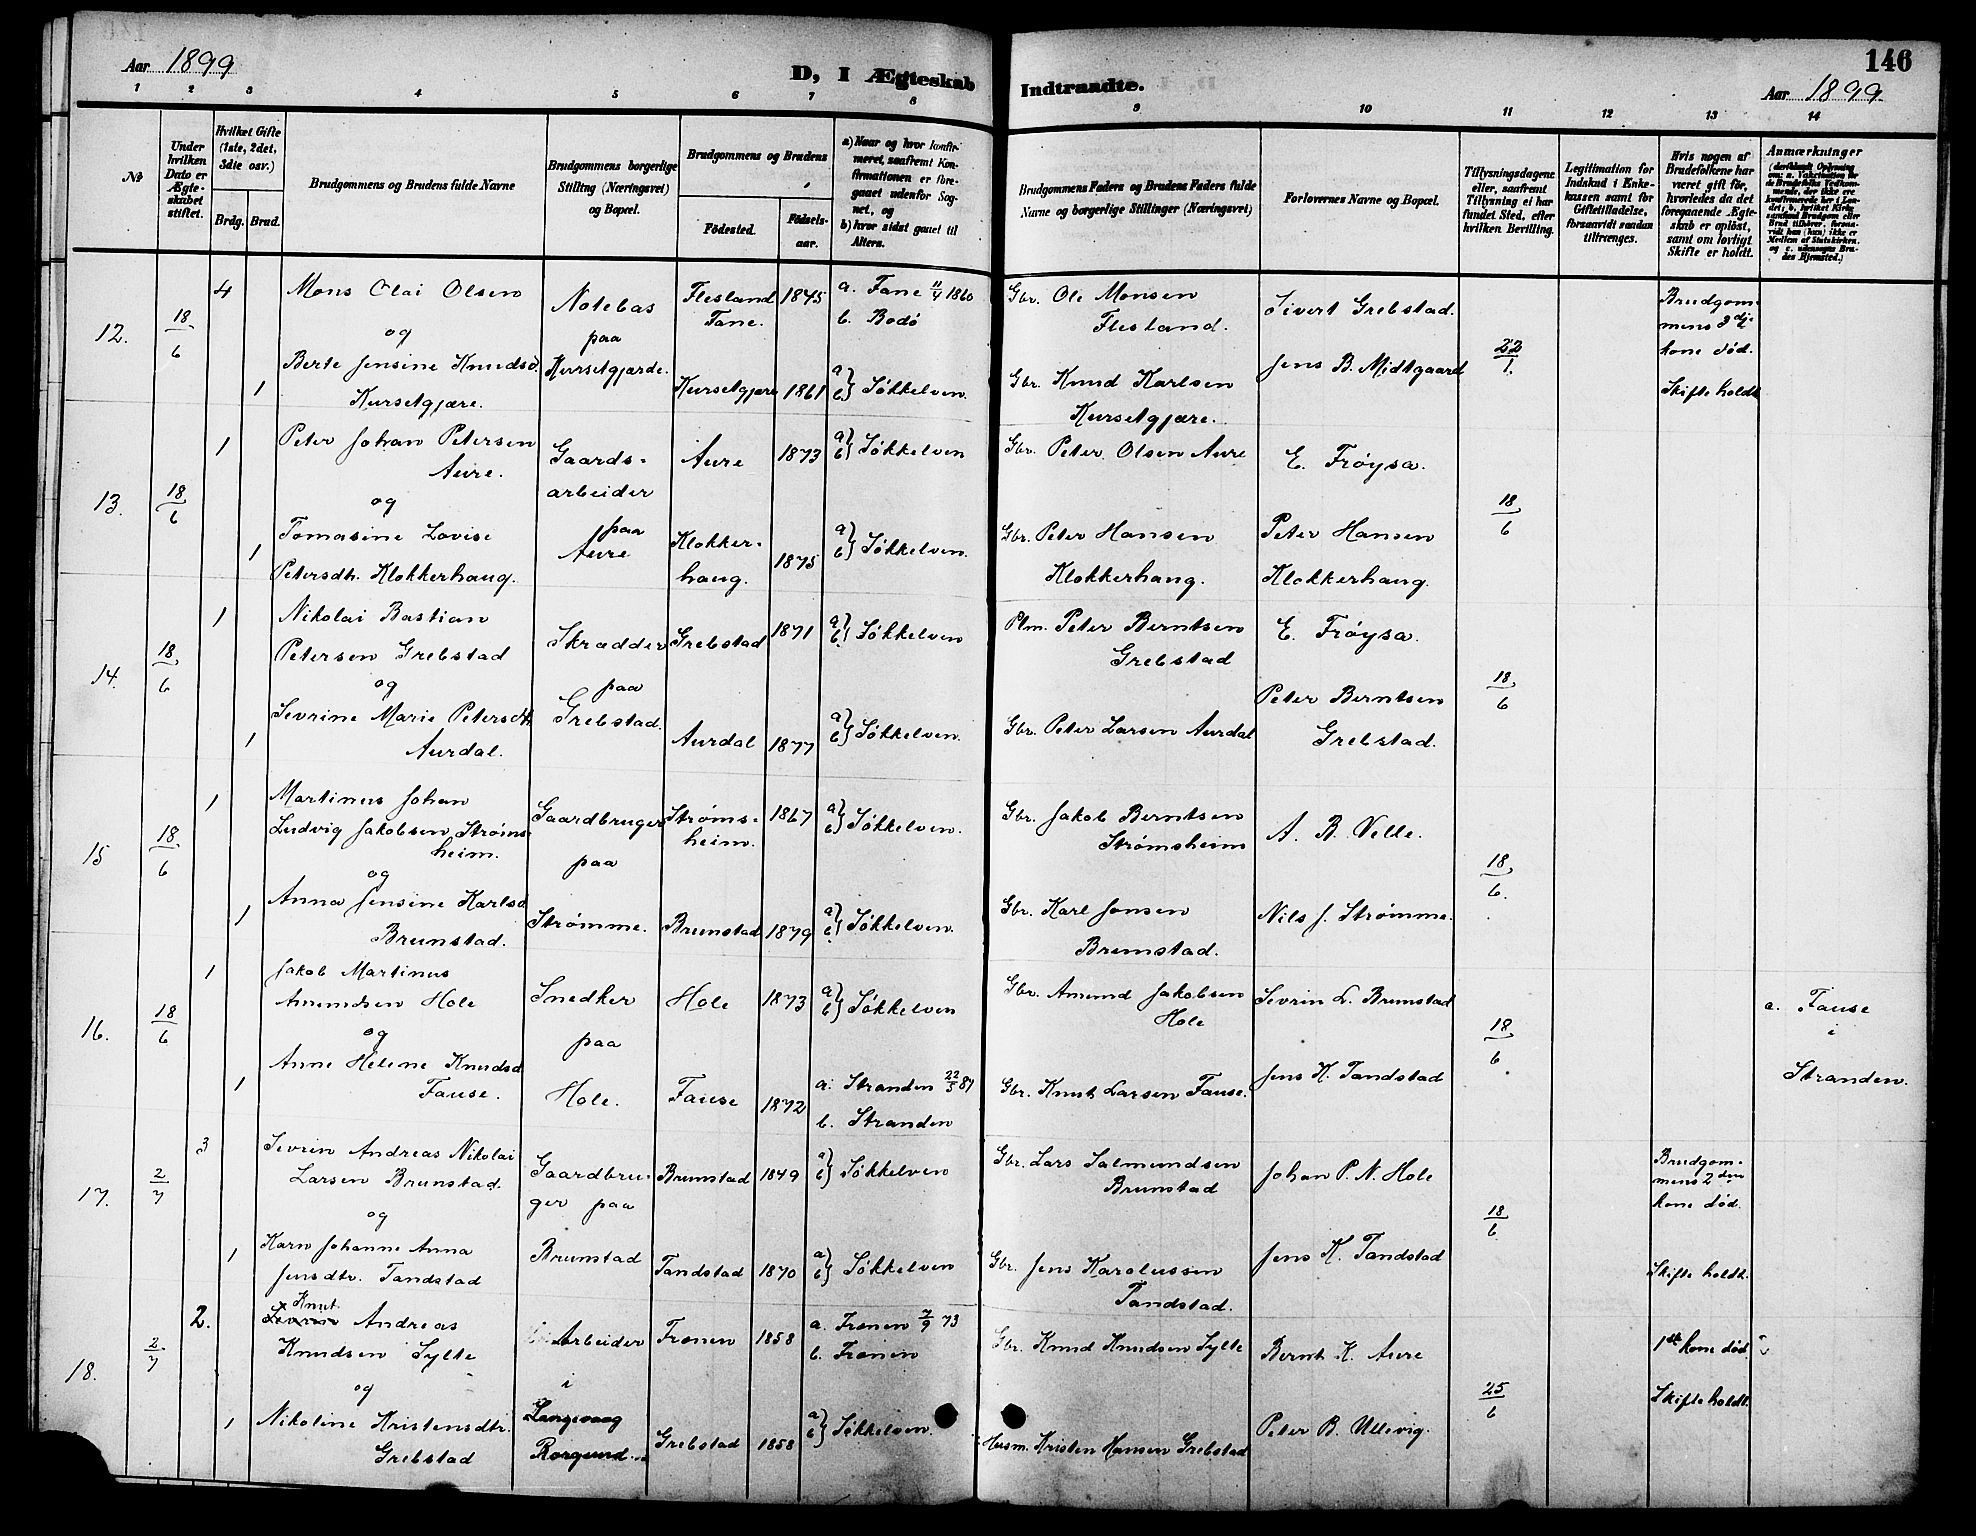 Aar 1899
D, I Ægteskab Indtraadte.
146
Aar 1899
1 2 3 4 5 6 7 8 9 10 11 12 13 14
No
Under hvilken Dato er Ægteskabet stiftet.
Hvilket Gifte (1ste, 2det, 3die osv.)
Brdg. Brud.
Brudgommens og Brudens fulde Navne
Brudgommens borgerlige Stilling (Næringsvei) og Bopæl.
Brudgommens og Brudens
Fødested.
Fødselsaar.
a) Naar og hvor konfirmeret, saafremt Konfirmationen er foregaaet udenfor Sognet, og
b) hvor sidst gaaet til Alters.
Brudgommens Faders og Brudens Faders fulde Navne og borgerlige Stillinger (Næringsvei)
Forlovernes Navne og Bopæl.
Tillysningsdagene eller, saafremt Tillysning ei har fundet Sted, efter hvilken Bevilling.
Legitimation for Indskud i Enkekassen samt for Giftetilladelse, forsaavidt saadan tiltrænges.
Hvis nogen af Brudefolkene har været gift før, hvorledes da det foregaaende Ægteskab er opløst, samt om lovligt Skifte er holdt.
Anmærkninger
12. 18/6 4 Mons Olai Olsen
og
1 Berte Jensine Knudsd.
Kursetgjære.
Notebas
paa
Kursetgjærde.
Flesland 1845
Fane.
Kursetgjære 1861
a. Fane 11/4 1860
b. Bodø
a} b} Søkkelven.
Gbr. Ole Monsen
Flesland.
Gbr. Knud Karlsen
Kursetgjære.
Sivert Grebstad.
Jens B. Midtgaard
22/1.
Brudgom-
mens 3dje
kone død.
Skifte holdt
13. 18/6 1 Peter Johan Petersen
Aure.
og
1 Tomasine Lovise
Petersdt. Klokkerhaug.
Gaards-
arbeider
paa
Aure
Aure 1873
Klokker-
haug. 1875
a} b} Søkkelven
a} b} Søkkelven.
Gbr. Peter Olsen Aure
Gbr. Peter Hansen
Klokkerhaug.
E. Frøysa.
Peter Hansen
Klokkerhaug.
18/6
14. 18/6 1 Nikolai Bastian
Petersen Grebstad
og
1 Sevrine Marie Petersdt.
Aurdal.
Skrædder
paa
Grebstad.
Grebstad 1871
Aurdal 1877
a} b} Søkkelven
a} b} Søkkelven.
Plm. Peter Berntsen
Grebstad
Gbr. Peter Larsen Aurdal
E. Frøysa.
Peter Berntsen
Grebstad.
18/6
15 18/6 1 Martinus Johan
Ludvig Jakobsen Strøms-
heim.
og
1 Anna Jensine Karlsd.
Brunstad.
Gaardbruger
paa
Strømme.
Strøms-
heim. 1867
Brunstad 1879
a} b} Søkkelven.
a} b} Søkkelven.
Gbr. Jakob Berntsen
Strømsheim
Gbr. Karl Jonsen
Brunstad.
A. B. Velle.
Nils J. Strømme.
18/6.
16. 18/6 1 Jakob Martinus
Amundsen Hole
og
1 Anne Helene Knudsd
Fause.
Snedker
paa
Hole.
Hole 1873
Fause 1872
a} b} Søkkelven
a. Stranden 22/5 87
b. Stranden
Gbr. Amund Jakobsen
Hole
Gbr. Knut Larsen Fause.
Sevrin L. Brunstad
Jens K. Tandstad
18/6
a. Fause
i
Stranden.
17. 2/7 3 Sevrin Andreas Nikolai
Larsen Brunstad.
og
1 Karn Johanne Anna
Jensdtr. Tandstad
Gaardbru-
ger paa
Brunstad
Brunstad 1849
Tandstad 1870
a} b} Søkkelven
a} b} Søkkelven
Gbr. Lars Salmundsen
Brunstad
Gbr. Jens Karolussen
Tandstad.
Johan P. N. Hole
Jens K. Tandstad
18/6
Brudgom-
mens 2den
kone død.
Skifte holdt.
18. 2/7 2. Knut Andreas
Knudsen Sylte
og
1 Nikoline Kristensdtr.
Grebstad
Arbeider
i
Langevaag
Borgund.
Fronen 1858
Grebstad 1858
a. Fronen 7/9 73
b. Fronen
a} b} Søkkelven.
Gbr. Knud Knudsen Sylte
Husm. Kristen Hansen Grebstad
Bernt K. Aure
Peter B. Ullevig.
25/6
1ste kone død.
Skifte holdt.